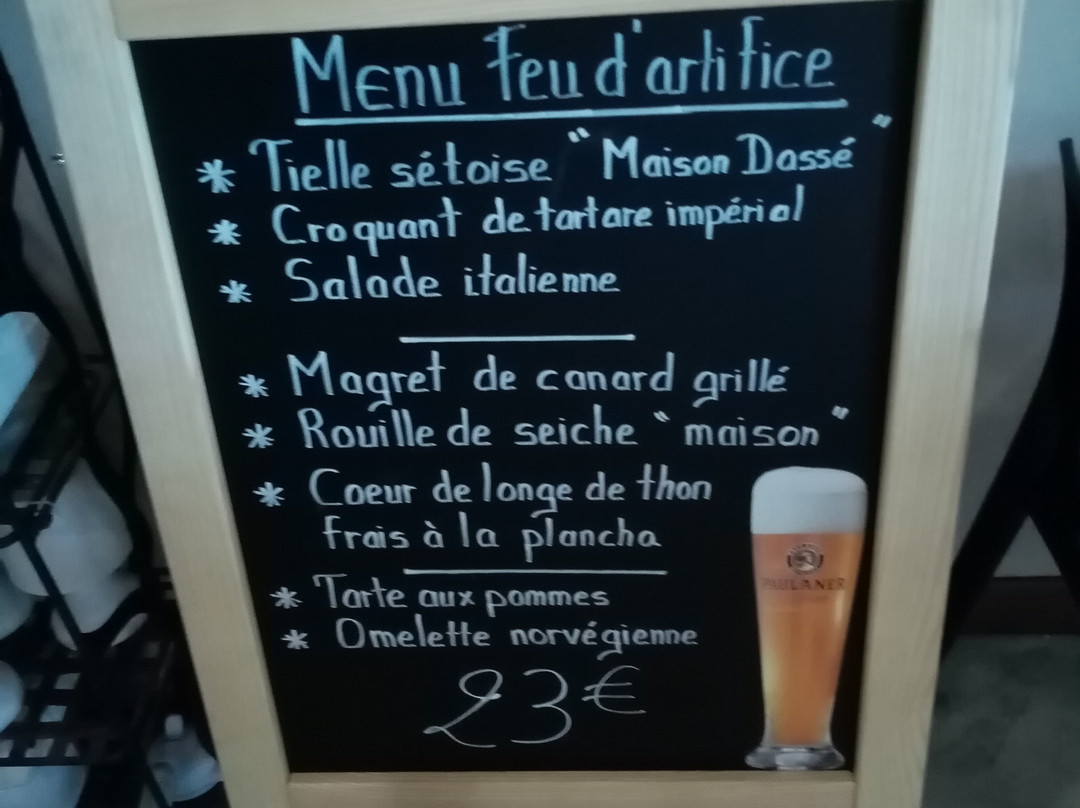 Menu Feu d'artifice
* Tielle sétoise "Maison Dassé"
* Croquant de tartare impérial
* Salade italienne
* Magret de canard grillé
* Rouille de seiche "maison"
* Coeur de longe de thon
frais à la plancha
* Tarte aux pommes
* Omelette norvégienne
23€
PAULANER